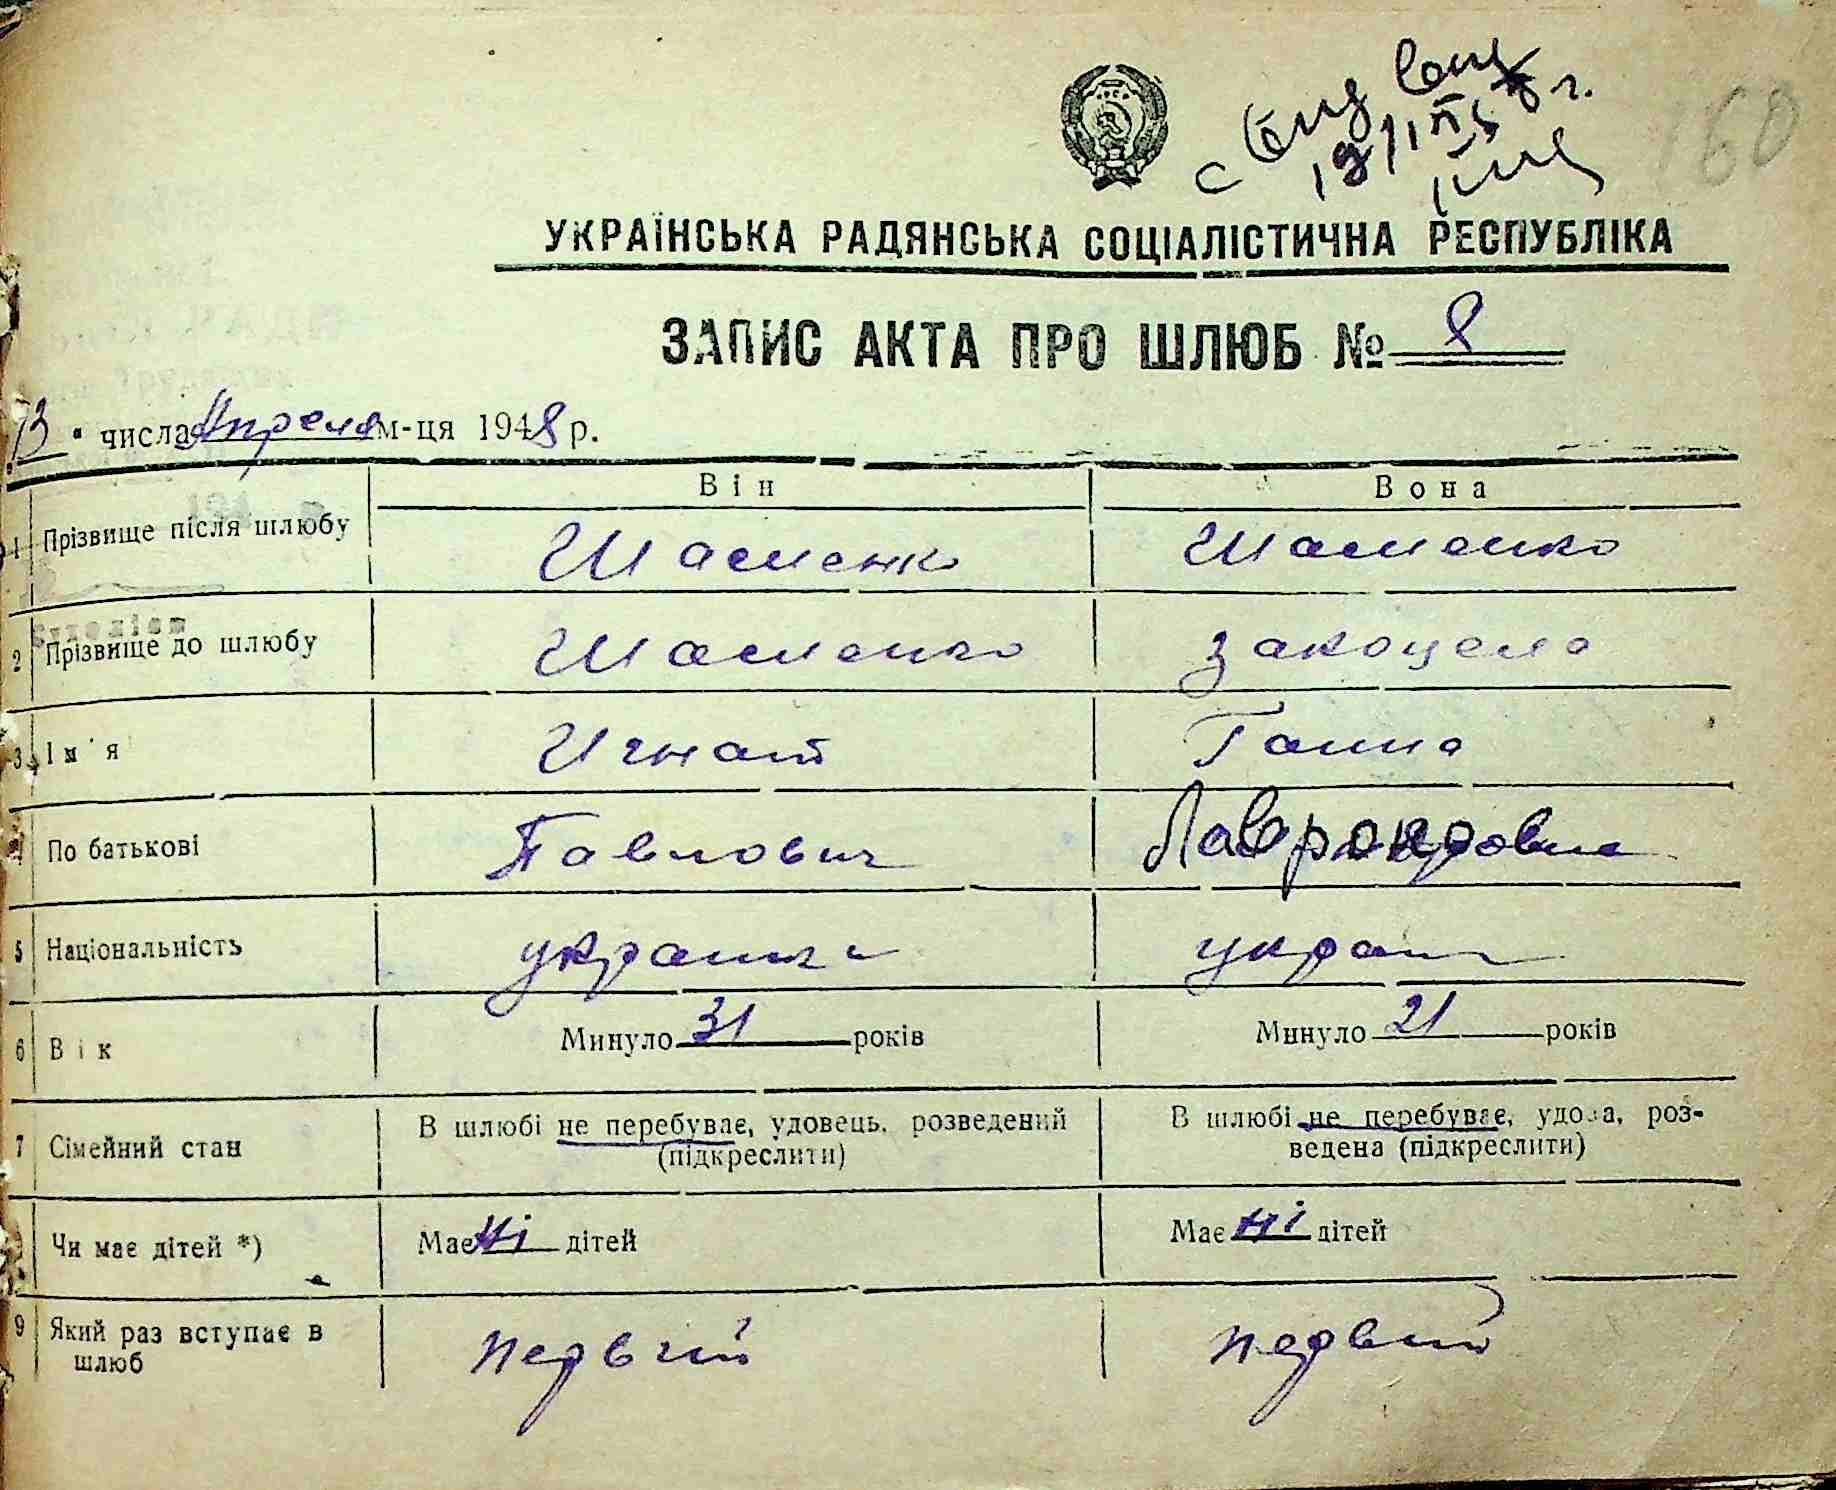 160
УКРАЇНСЬКА РАДЯНСЬКА СОЦІАЛІСТИЧНА РЕСПУБЛІКА
ЗАПИС АКТА ПРО ШЛЮБ № 8
13 " числа Апреля м-ця 1948 р.
Він Вона
1 Прізвище після шлюбу
2 Прізвище до шлюбу
3 Ім'я Игнат Ганна
4 По батькові Павлович
5 Національність
6 Вік Минуло 31 років Минуло 21 років
7 Сімейний стан В шлюбі не перебуває, удовець, розведений В шлюбі не перебуває, удова, роз-
(підкреслити) ведена (підкреслити)
Чи має дітей *) Має ні дітей Має ні дітей
9 Який раз вступає в первий первий
шлюб